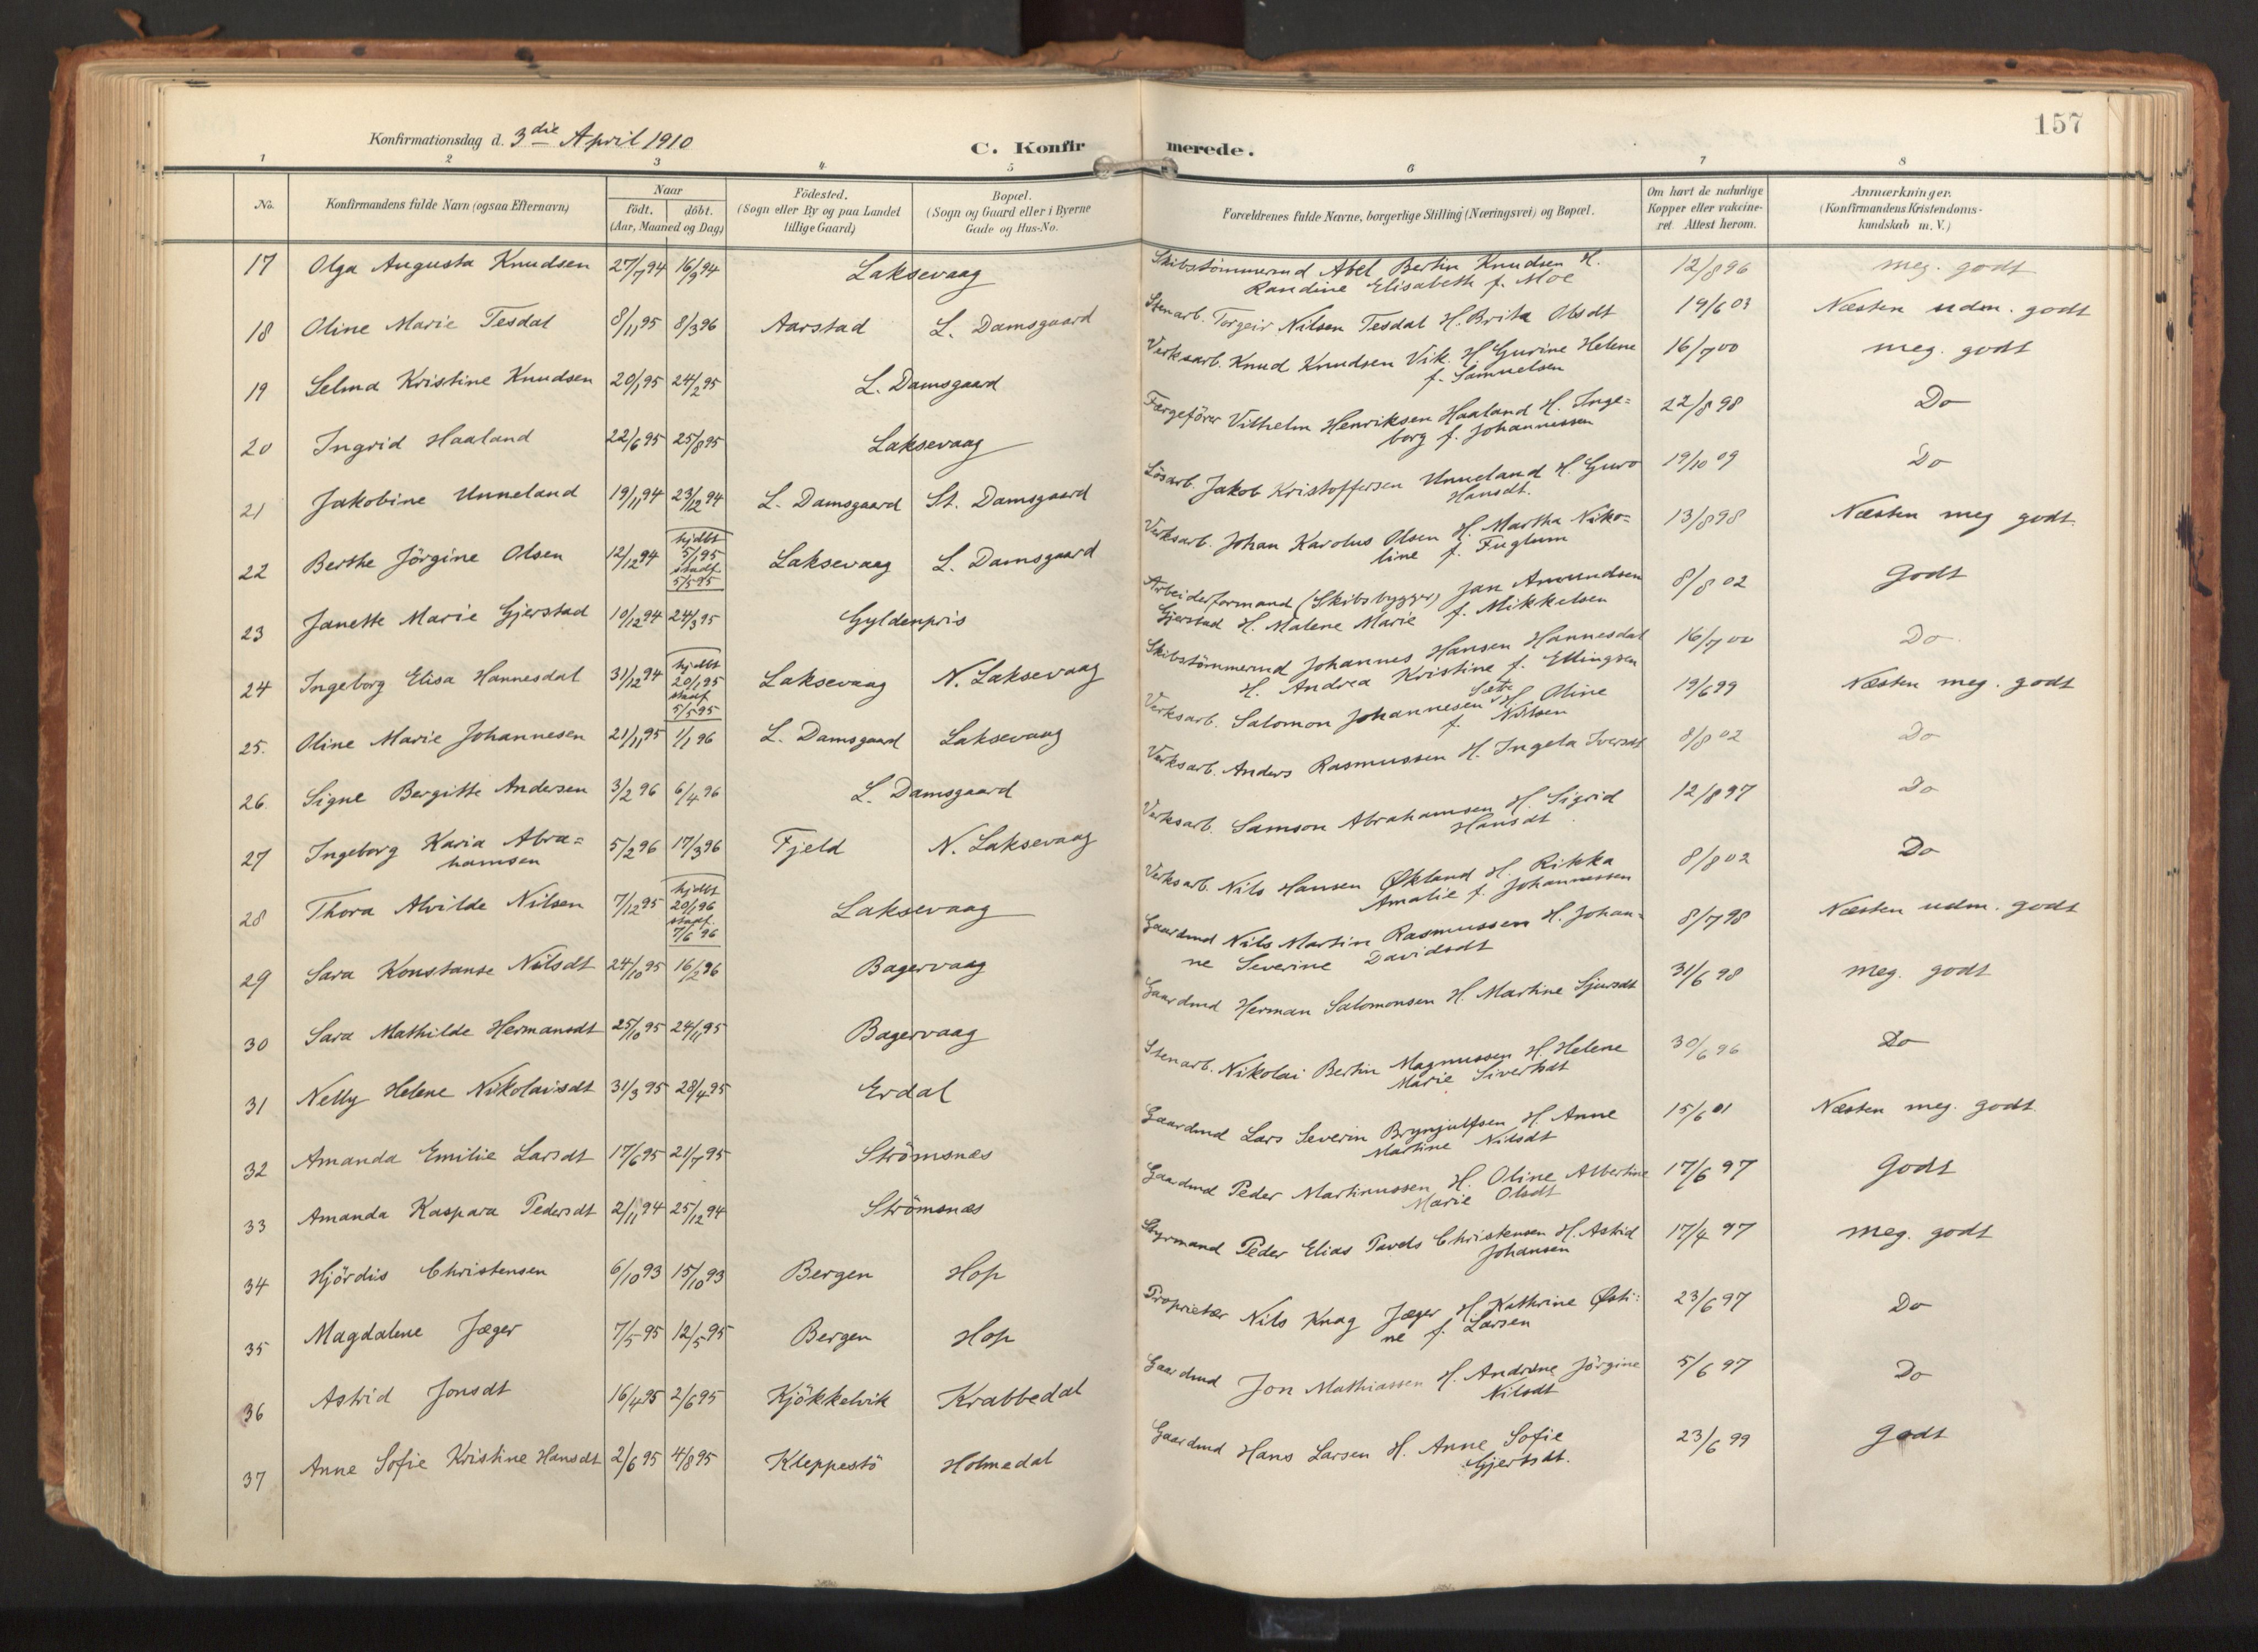 157
Konfirmationsdag d. 3die April 1910
C. Konfirmerede.
1 2 3 4 5 6 7 8
No. Konfirmandens fulde Navn (ogsaa Efternavn) Naar födt. döbt. (Aar, Maaned og Dag) Födested. (Sogn eller By og paa Landet tillige Gaard) Bopæl. (Sogn og Gaard eller i Byerne Gade og Hus-No. Forældrenes fulde Navne, borgerlige Stilling (Næringsvei) og Bopæl. Om havt de naturlige Kopper eller vakcineret. Attest herom. Anmærkninger. (Konfirmandens Kristendomskundskab m. V.)
17 Olga Augusta Knudsen 27/7 94 16/9 94 Laksevaag Skibstömmermd Abel Bertin Knudsen H. Randine Elisabeth f. Moe 12/8 96 meg. godt
18 Oline Marie Tesdal 8/11 95 8/3 96 Aarstad L. Damsgaard Stenarb. Torgeir Nilsen Tesdal H. Brita Olsdt 19/6 03 Næsten udm. godt
19 Selma Kristine Knudsen 20/1 95 24/2 95 L. Damsgaard Verksarb. Knud Knudsen Vik. H. Gurine Helene f. Samuelsen 16/7 00 meg. godt
20 Ingrid Haaland 22/6 95 25/8 95 Laksevaag Færgeförer Vilhelm Henriksen Haaland H. Inge= borg f. Johannessen 22/8 98 Do
21 Jakobine Unneland 19/11 94 23/12 94 L. Damsgaard St. Damsgaard Lösarb. Jakob Kristoffersen Unneland H. Guro Hansdt. 19/10 09 Do
22 Berthe Jörgine Olsen 12/12 94 hjdbt 5/1 95 stadf. 5/5 95 Laksevaag L. Damsgaard Verksarb. Johan Karolus Olsen H. Martha Niko= line f. Fuglum 13/8 98 Næsten meg godt.
23 Janette Marie Gjerstad 10/12 94 24/3 95 Gyldenpris Arbeiderformand (Skibsbygger) Jan Amundsen Gjerstad H. Malene Marie f. Mikkelsen 8/8 02 Godt
24 Ingeborg Elisa Hannesdal 31/12 94 hjdbt 20/1 95 stadf. 5/5 95 Laksevaag N. Laksevaag Skibstömmermd Johannes Hansen Hannesdal H. Andrea Kristine f. Ellingsen 16/7 00 Do
25. Oline Marie Johannesen 21/11 95 1/1 96 L. Damsgaard Laksevaag Verksarb. Salomon Johannesen Sætre H. Oline f. Nilsen 19/6 99 Næsten meg. godt
26. Signe Bergitte Andersen 3/2 96 6/4 96 L. Damsgaard Verksarb. Anders Rasmussen H. Ingela Iversdt 8/8 02 Do
27 Ingeborg Karia Abra= hamsen 5/2 96 17/3 96 Fjeld N. Laksevaag Verksarb. Samson Abrahamsen H. Sigrid Hansdt. 12/8 97 Do
28 Thora Alvilde Nilsen 7/12 95 hjdbt 20/1 96 stadf. 7/6 96 Laksevaag Verksarb. Nils Hansen Økland H. Rikka Amalie f. Johannessen 8/8 02 Do
29 Sara Konstanse Nilsdt 24/10 95 16/2 96 Bagervaag Gaardmd Nils Martin Rasmussen H. Johan= ne Severine Davidsdt 8/7 98 Næsten udm. godt
30 Sara Mathilde Hermansdt 25/10 95 24/11 95 Bagervaag Gaardmd Herman Salomonsen H. Martine Sjursdt 31/6 98 meg. godt
31 Nelly Helene Nikolaisdt 31/3 95 28/4 95 Erdal Stenarb. Nikolai Bertin Magnussen H. Helene Marie Sivertsdt 30/6 96 Do
32 Amanda Emilie Larsdt 17/6 95 21/7 95 Strömsnæs Gaardmd Lars Severin Brynjulfsen H. Anne Martine Nilsdt 15/6 01 Næsten meg. godt.
33 Amanda Kaspara Pedersdt 2/11 94 25/12 94 Strömsnæs Gaardmd Peder Martinussen H. Oline Albertine Marie Olsdt 17/6 97 Godt
34 Hjördis Christensen 6/10 93 15/10 93 Bergen Hop Styrmand Peder Elias Pavels Christensen H. Astrid Johansen 17/4 97 meg. godt
35 Magdalene Jæger 7/5 95 12/5 95 Bergen Hop Proprietær Nils Knag Jæger H. Kathrine Østi= ne f. Larsen 23/6 97 Do
36 Astrid Jonsdt 16/4 95 2/6 95 Kjökkelvik Krabbedal Gaardmd Jon Mathiassen H. Andrine Jörgine Nilsdt 5/6 97 Do
37 Anne Sofie Kristine Hansdt 2/6 95 4/8 95 Kleppestö Holmedal Gaardmd Hans Larsen H. Anne Sofie Gjertsdt. 23/6 99 Godt